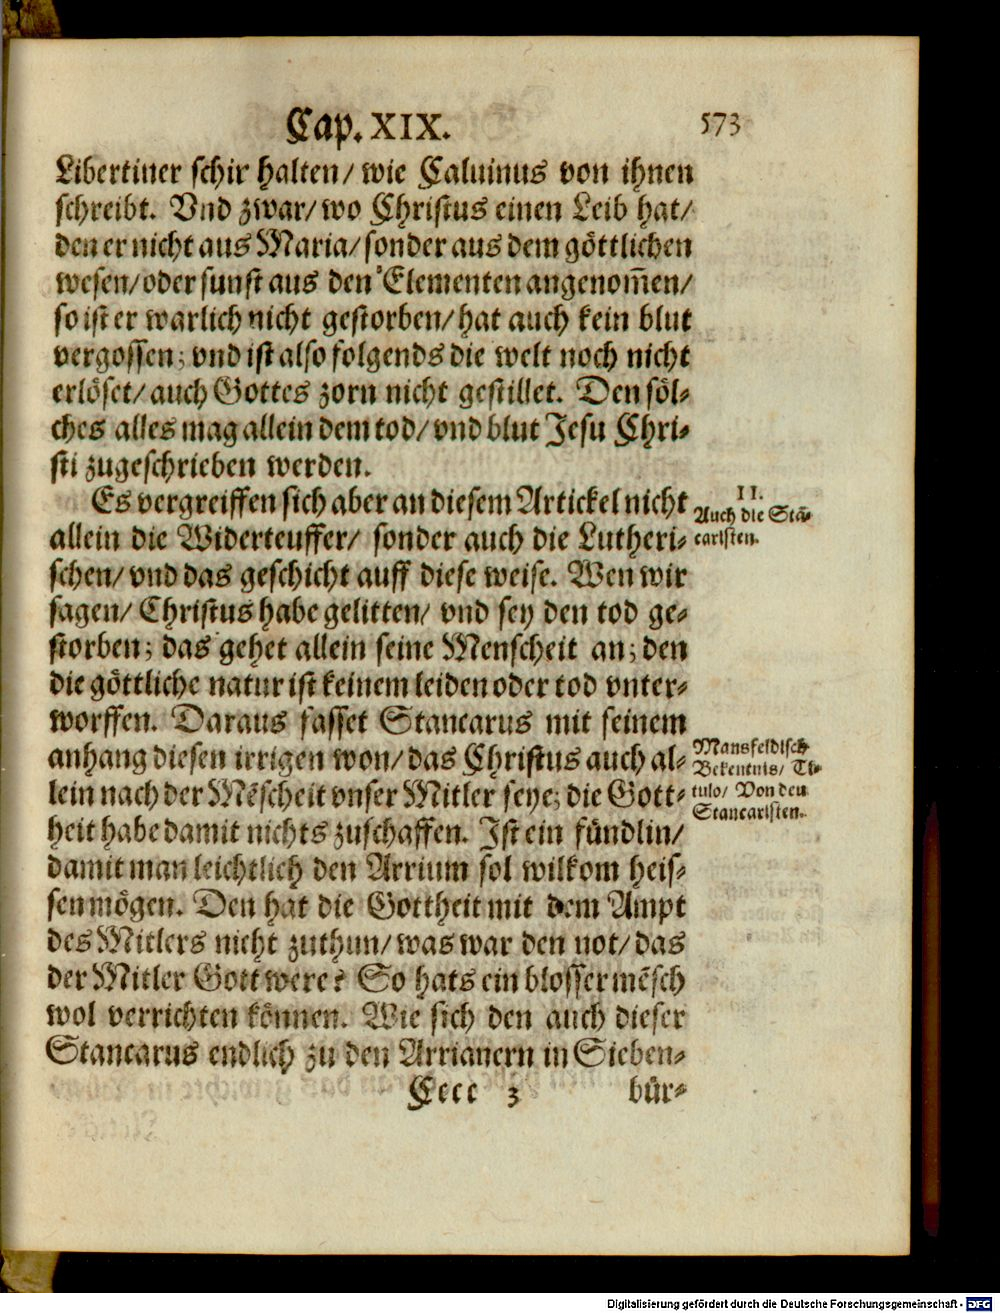 Cap. XIX. 573
Libertiner schir halten/ wie Caluinus von ihnen
schreibt. Vnd zwar/ wo Christus einen Leib hat/
den er nicht aus Maria/ sonder aus dem göttlichen
wesen/ oder sunst aus den Elementen angenom̃en/
so ist er warlich nicht gestorben/ hat auch kein blut
vergossen; vnd ist also folgends die welt noch nicht
erlöset/ auch Gottes zorn nicht gestillet. Den söl-
ches alles mag allein dem tod/ vnd blut Jesu Chri-
sti zugeschrieben werden.
Es vergreiffen sich aber an diesem Artickel nicht
allein die Widerteuffer/ sonder auch die Lutheri-
schen/ vnd das geschicht auff diese weise. Wen wir
sagen/ Christus habe gelitten/ vnd sey den tod ge-
storben; das gehet allein seine Menscheit an; den
die göttliche natur ist keinem leiden oder tod vnter-
worffen. Daraus fasset Stancarus mit seinem
anhang diesen irrigen won/ das Christus auch al-
lein nach der Mẽscheit vnser Mitler seye; die Gott-
heit habe damit nichts zuschaffen. Ist ein fündlin/
damit man leichtlich den Arrium sol wilkom heis-
sen mögen. Den hat die Gottheit mit dem Ampt
des Mitlers nicht zuthun/ was war den not/ das
der Mitler Gott were? So hats ein blosser mẽsch
wol verrichten können. Wie sich den auch dieser
Stancarus endlich zu den Arrianern in Sieben-
Cccc 3 bür-
II.
Auch die Stã-
caristen.
Mansfeldisch
Bekentnis/ Ti-
tulo/ Von den
Stancaristen.
Digitalisierung gefördert durch die Deutsche Forschungsgemeinschaft - DFG